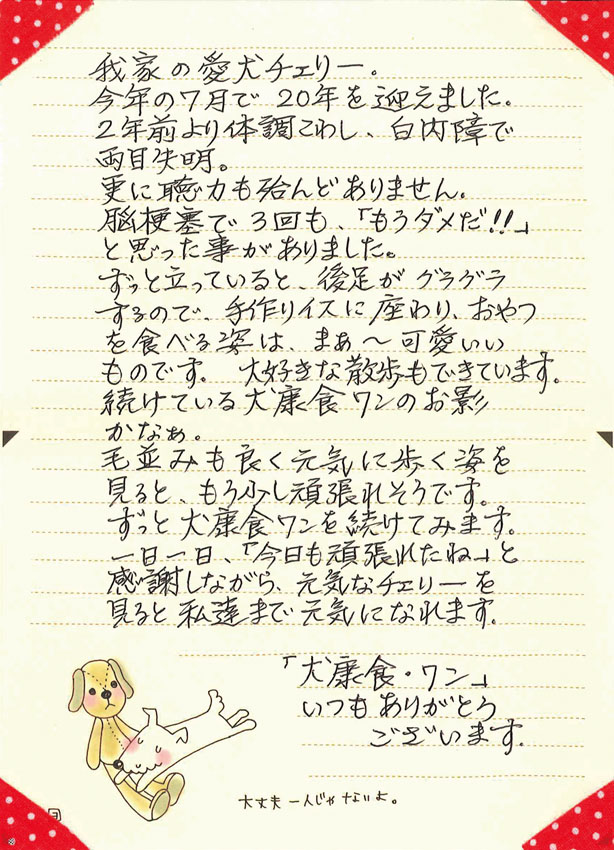 我家の愛犬チェリー。
今年の7月で 20年を迎えました。
2年前より体調こわし、白内障で
両目失明。
更に聴力も殆んどありません。
脳梗塞で 3回も、「もうダメだ!!」
と思った事がありました。
ずっと立っていると、後足が グラグラ
するので、手作りイスに 座わり、おやつ
を食べる姿は、まぁ〜 可愛いい
ものです。 大好きな散歩もできています。
続けている犬康食ワンのお影
かなぁ。
毛並みも良く元気に歩く姿を
見ると、もう少し頑張れそうです。
ずっと犬康食ワンを続けてみます。
一日一日、「今日も頑張れたね」と
感謝しながら、元気なチェリーを
見ると私達まで元気になれます。
「犬康食・ワン」
いつもありがとう
ございます。
大丈夫 一人じゃないよ。